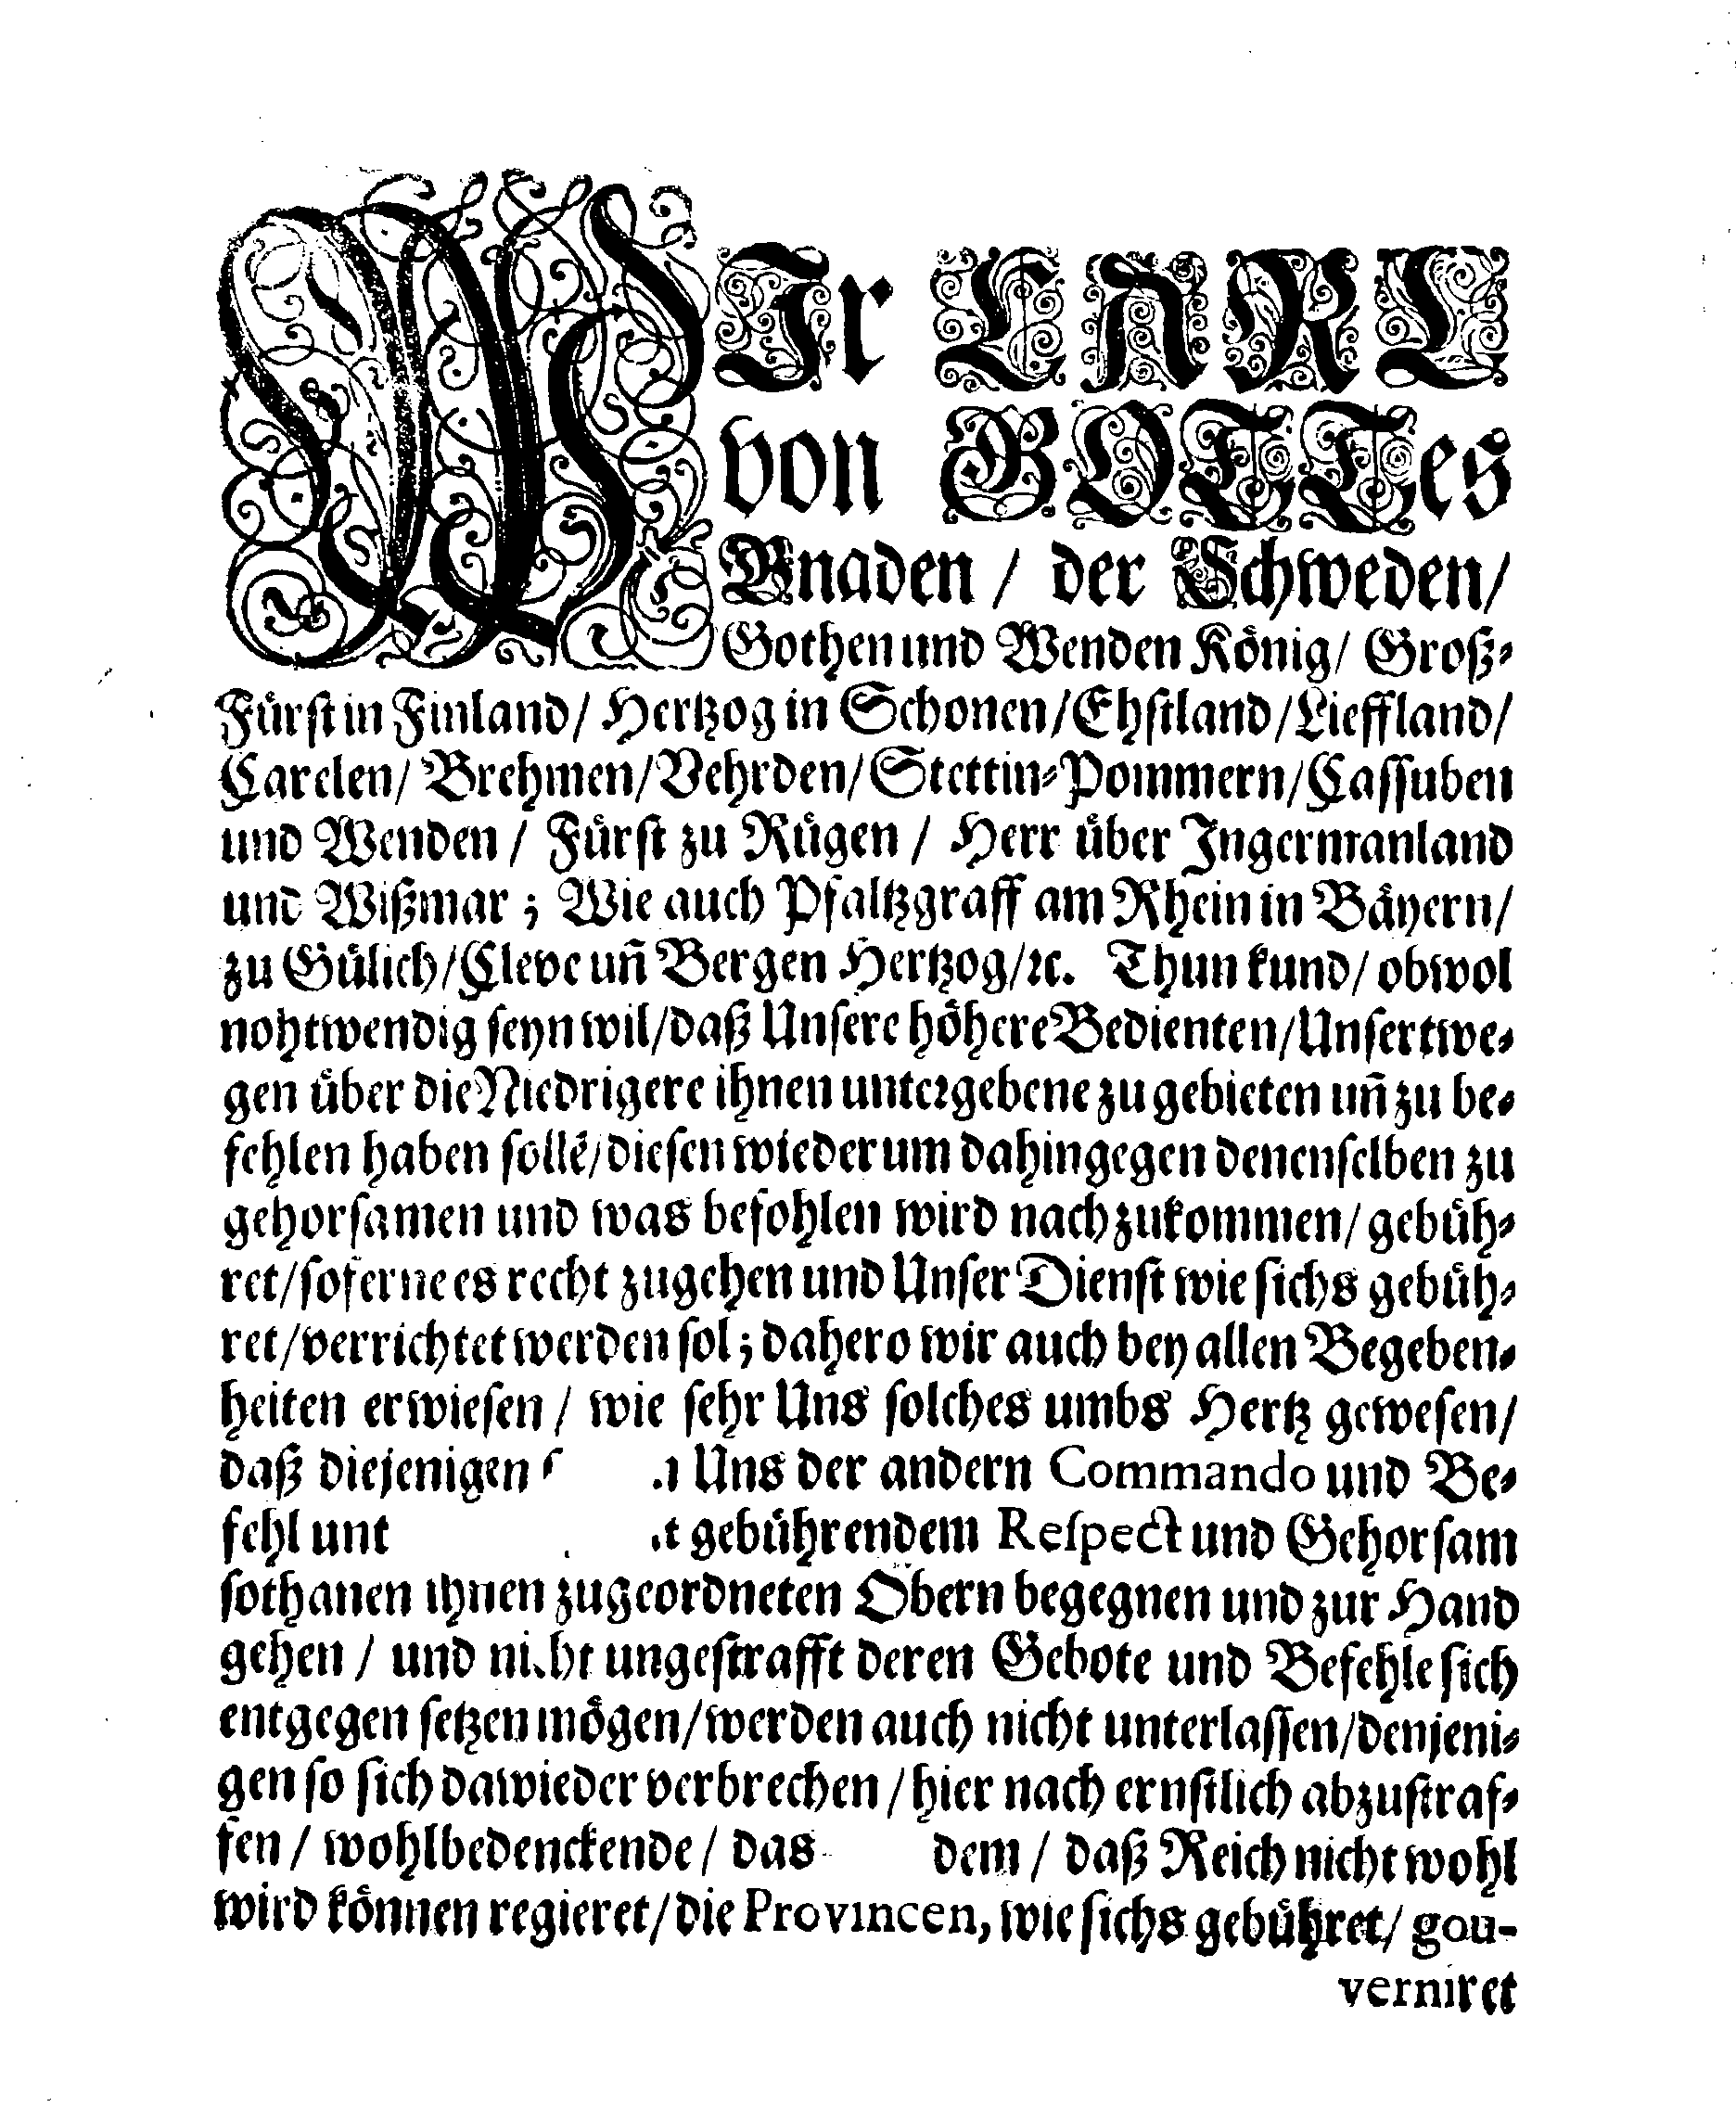 WIr CARL
von GOTTes
Gnaden / der Schweden/
Gothen und Wenden König/ Groß-
Fürst in Finland/ Hertzog in Schonen/Ehstland/Lieffland/
Carelen/ Brehmen/Vehrden/Stettin-Pommern/Cassuben
und Wenden / Fürst zu Rügen / Herr über Ingermanland
und Wißmar ; Wie auch Pfaltzgraff am Rhein in Bäyern/
zu Gülich/Cleve uñ Bergen Hertzog/ꝛc. Thun kund/ obwol
nohtwendig seyn wil/daß Unsere höhere Bedienten/Unsertwe-
gen über die Niedrigere ihnen untergebene zu gebieten uñ zu be-
fehlen haben sollẽ/diesen wiederum dahingegen denenselben zu
gehorsamen und was befohlen wird nachzukommen/ gebüh-
ret/soferne es recht zugehen und Unser Dienst wie sichs gebüh-
ret/verrichtet werden sol; dahero wir auch bey allen Begeben-
heiten erwiesen / wie sehr Uns solches umbs Hertz gewesen/
daß diejenigen Uns der andern Commando und Be-
fehl unt gebührendem Respect und Gehorsam
sothanen ihnen zugeordneten Obern begegnen und zur Hand
gehen / und nicht ungestrafft deren Gebote und Befehle sich
entgegen setzen mögen/werden auch nicht unterlassen/denjeni-
gen so sich dawieder verbrechen /hier nach ernstlich abzustraf-
fen / wohlbedenckende/ das dem / daß Reich nicht wohl
wird können regieret/die Provincen, wie sichs gebühret/ gou-
verniret